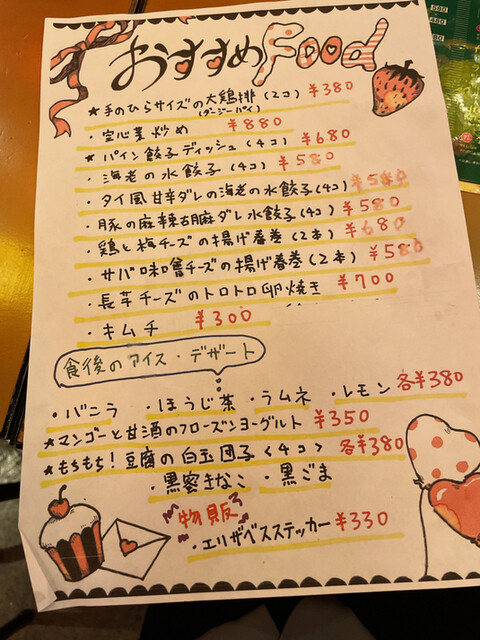 おすすめFood
★手のひらサイズの大鶏排(2コ) ¥380
(ダージーパイ)
・空心菜炒め ¥880
★パイン餃子ディッシュ(4コ) ¥680
・海老の水餃子(4コ) ¥580
・タイ風甘辛ダレの海老の水餃子(4コ) ¥580
・豚の麻辣胡麻ダレ水餃子(4コ) ¥580
・鶏と梅チーズの揚げ春巻(2本) ¥680
・サバ味噌チーズの揚げ春巻(2本) ¥580
・長芋チーズのトロトロ卵焼き ¥700
・キムチ ¥300
食後のアイス・デザート
・バニラ ・ほうじ茶 ・ラムネ ・レモン 各¥380
★マンゴーと甘酒のフローズンヨーグルト ¥350
★もちもち!豆腐の白玉団子<4コ> 各¥380
・黒蜜きなこ ・黒ごま
物販
・エリザベスステッカー ¥330
580
480